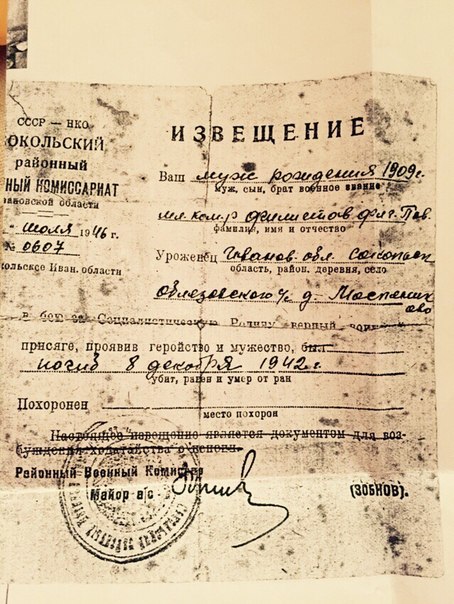 СССР — НКО
ОКОЛЬСКИЙ
районный
НЫЙ КОМИССАРИАТ
вановской области
июля 1946 г.
№ 0607
кольское Иван. области
ИЗВЕЩЕНИЕ
Ваш муж рождения 1909г.
муж, сын, брат военное звание
мл. ком-р Филиппов
фамилия, имя и отчество
Уроженец Иванов. обл. Сокольск
область, район, деревня, село
д.
в бою за Социалистическую Родину, верный
присяге, проявив геройство и мужество, был
погиб 8 декабря 1942 г.
убит, ранен и умер от ран
Похоронен
место похорон
Настоящее извещение является документом для воз-
буждения ходатайства о пенсии.
Районный Военный Комиссар
Майор а/с
(ЗОБНОВ).